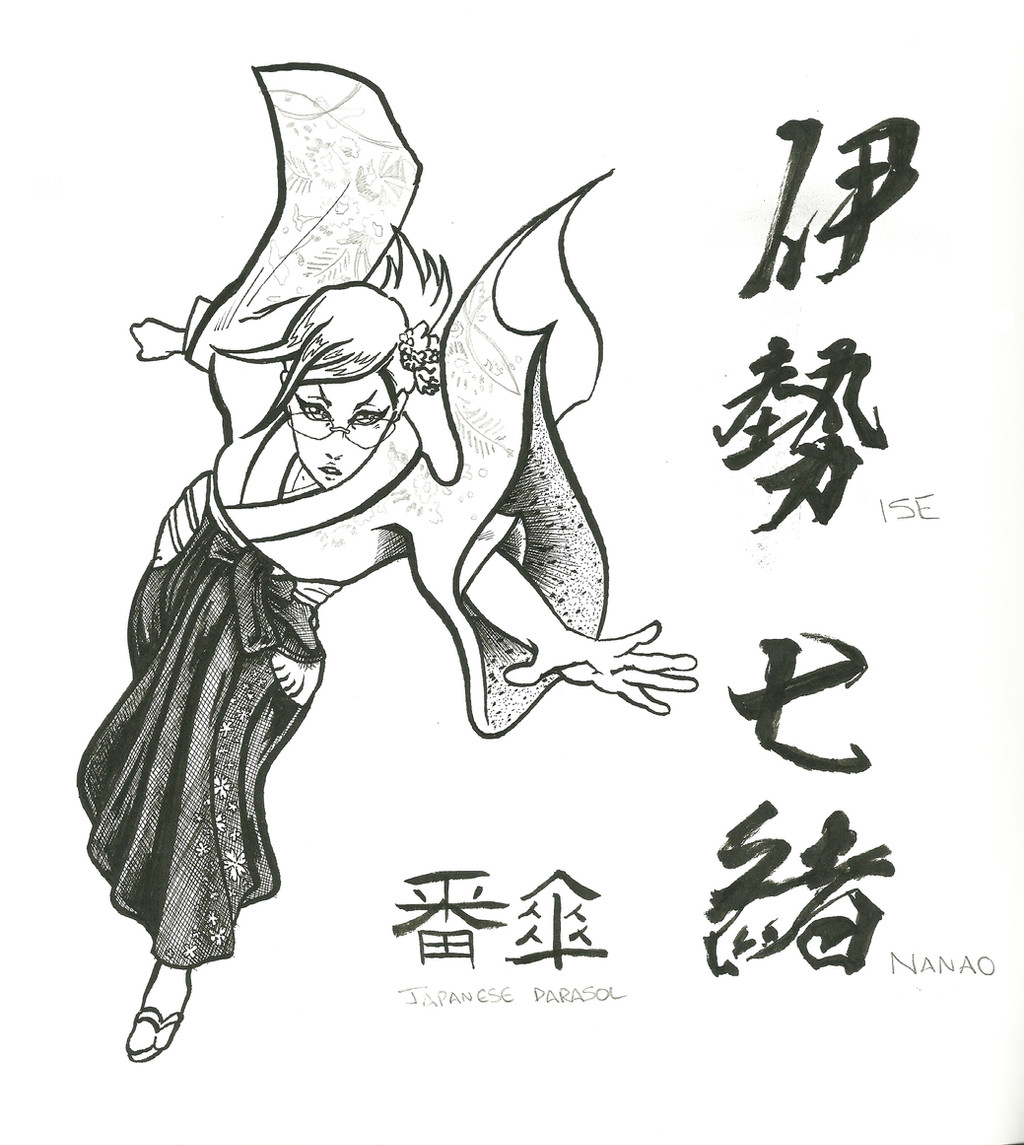 伊勢七緒
ISE
NANAO
番傘
JAPANESE PARASOL